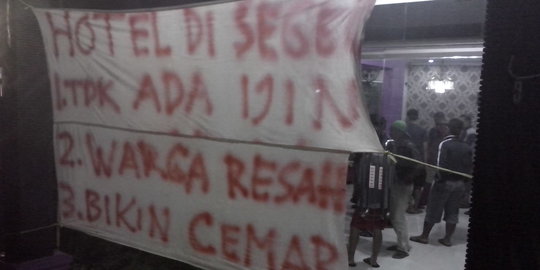 HOTEL DI SEGE
1. TDK ADA IJIN
2. WARGA RESAH
3. BIKIN CEMAR